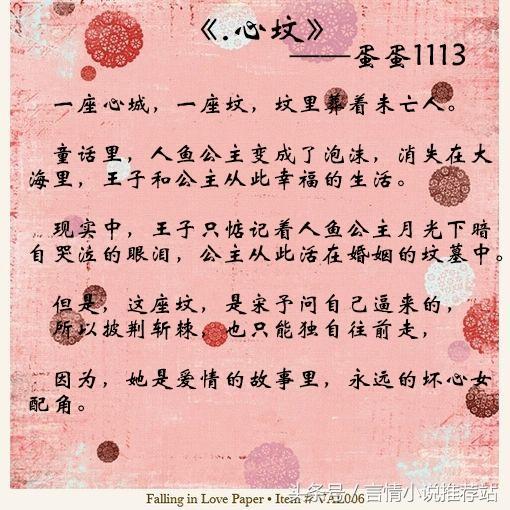 《.心坟》
——蛋蛋1113
一座心城，一座坟，坟里葬着未亡人。
童话里，人鱼公主变成了泡沫，消失在大
海里，王子和公主从此幸福的生活。
现实中，王子只惦记着人鱼公主月光下暗
自哭泣的眼泪，公主从此活在婚姻的坟墓中。
但是，这座坟，是宋予问自己逼来的，
所以披荆斩棘，也只能独自往前走，
因为，她是爱情的故事里，永远的坏心女
配角。
Falling in Love Paper • Item # VAL006
头条号／言情小说推荐站